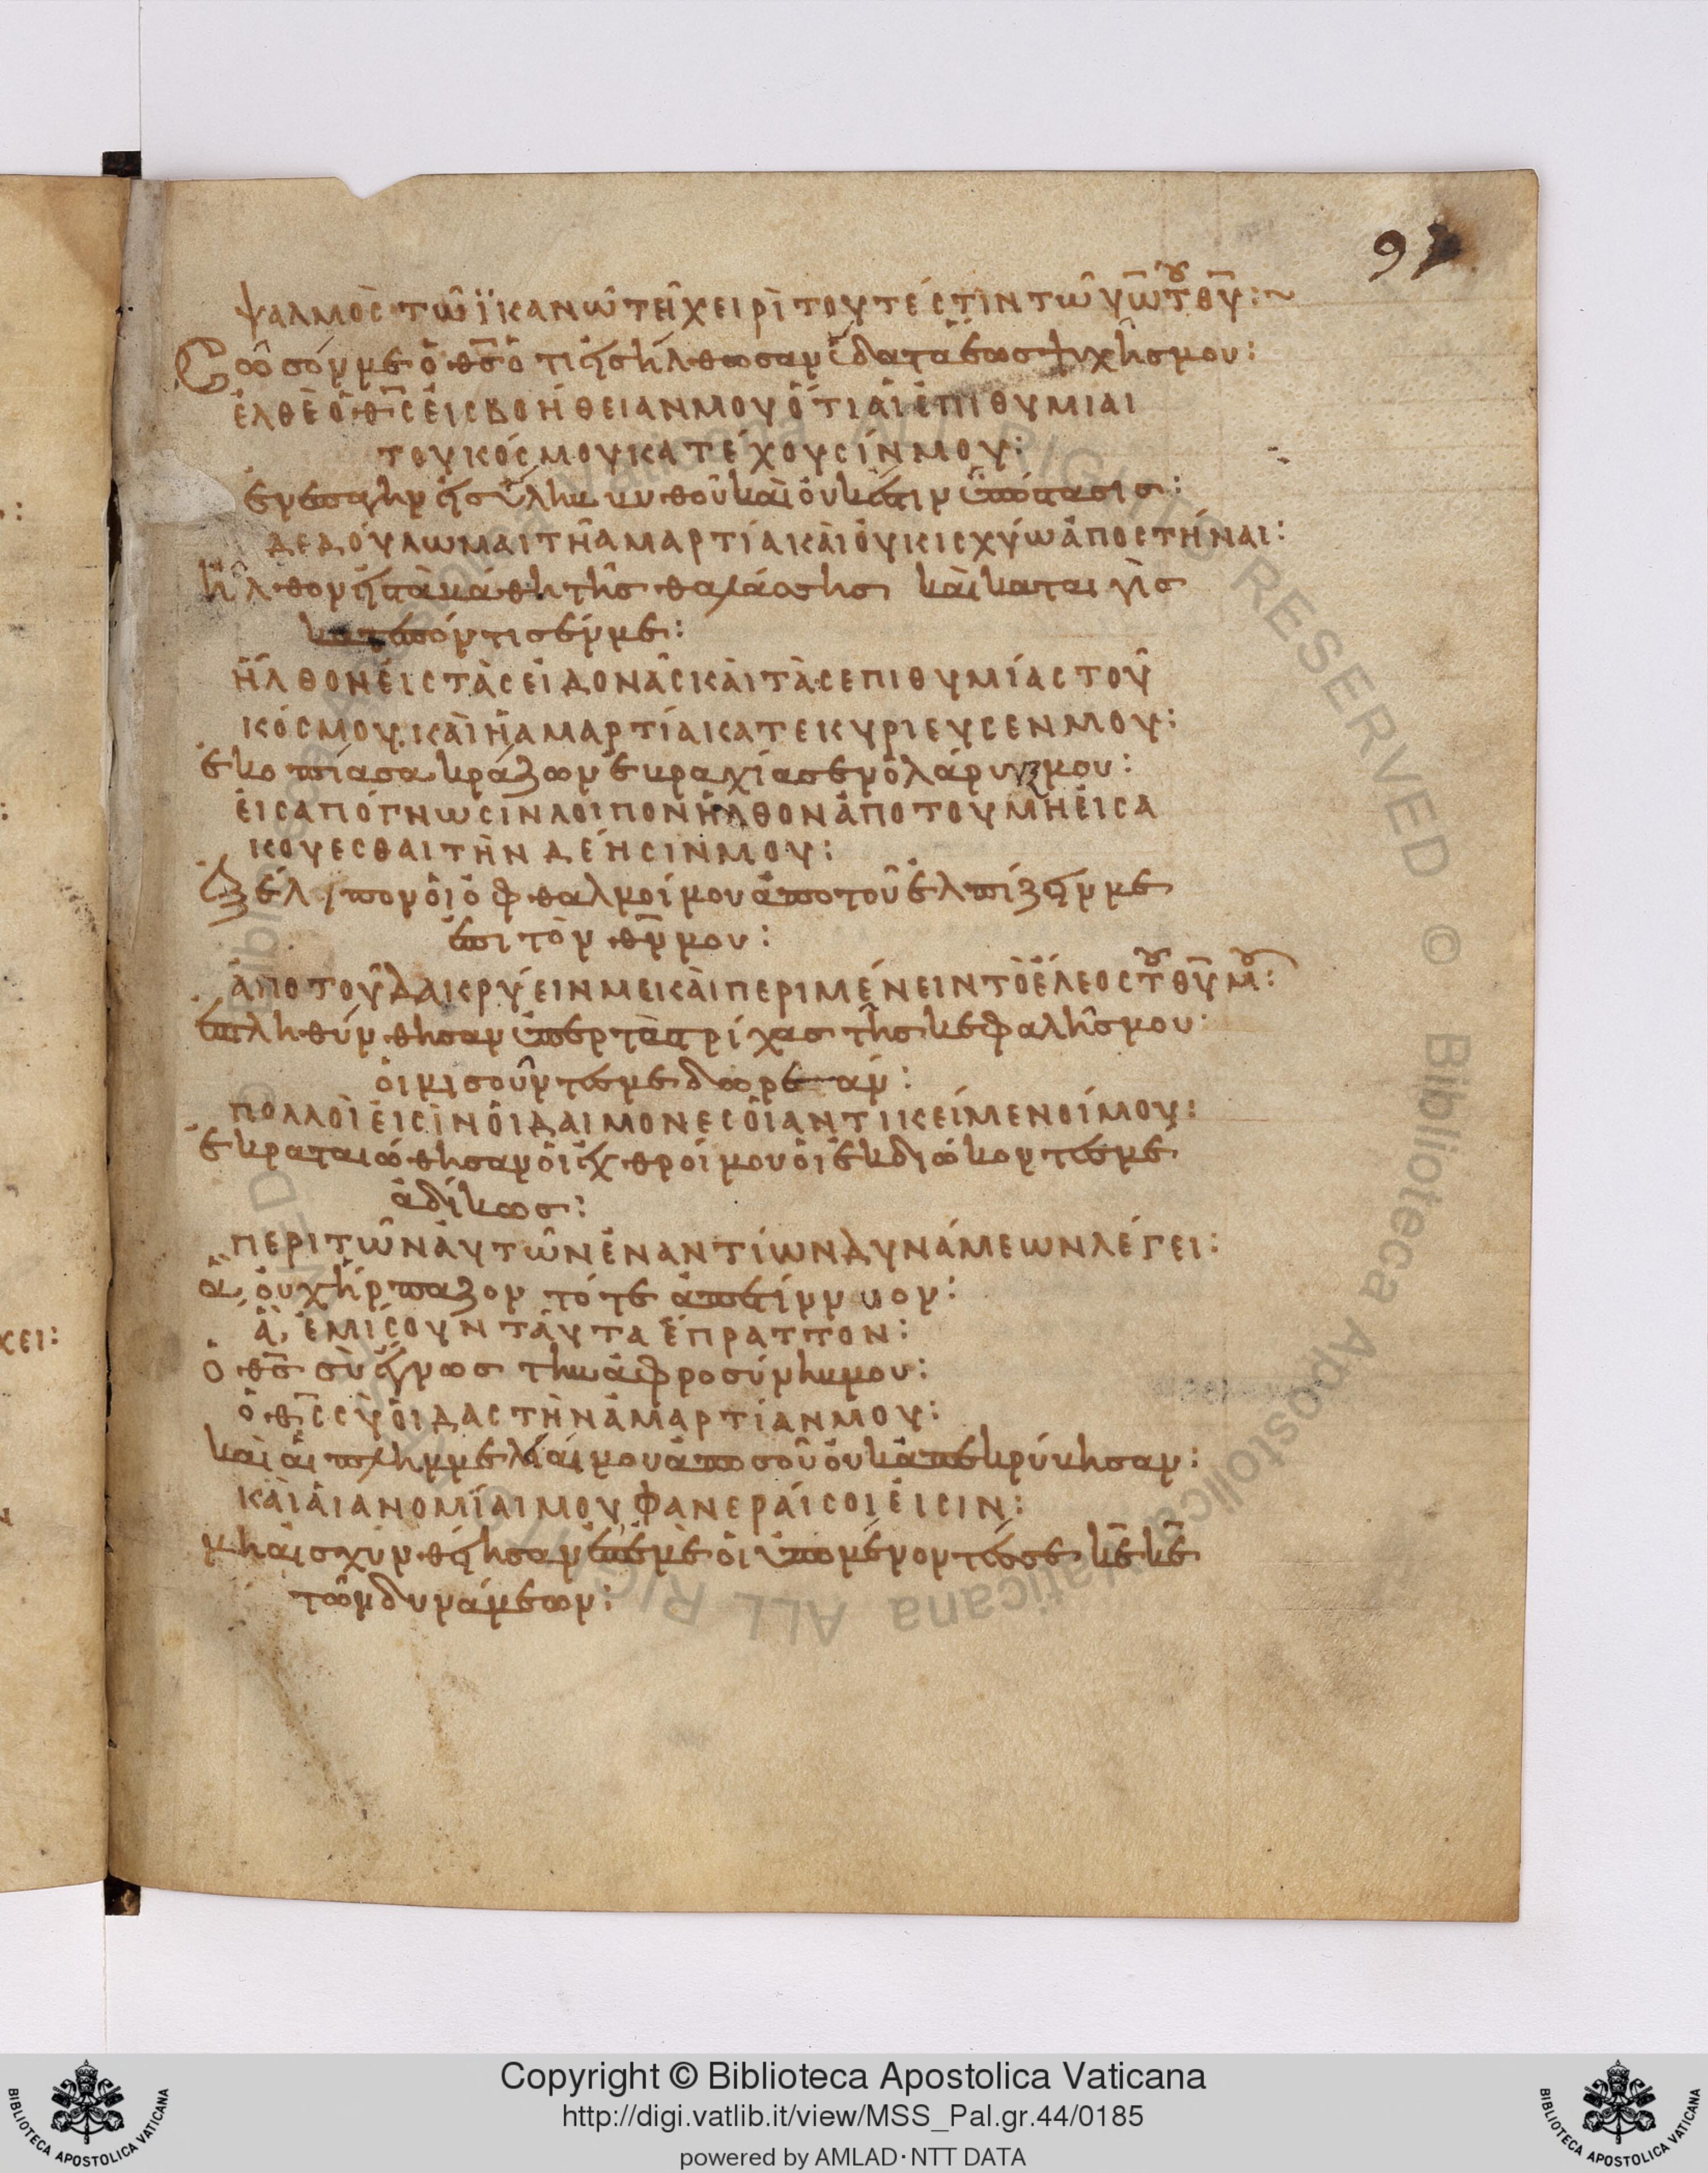 97
ψαλμὸς τῶ ἱκανῶ τῆ χειρὶ τουτέστιν τῶ υω τοῦ θυ:~
Σῶσόν με ὁ θς ὅτι εἰσήλθωσαν ὕδατα ἕως ψυχῆς μου:
ἐλθὲ ὁ θς εἰς βοήθειαν μου ὅτι αἱ ἐπιθυμίαι
του κόσμου κατέχουσίν μου:
ἐνεπάγην εἰς ὕλην βυθοῦ καὶ οὐκ ἔστιν ὑπόστασις:
δεδούλωμαι τῆ αμαρτία καὶ οὐκ ισχύω ἀποστῆναι:
ἦλθον εἰς τὰ βάθη τῆς θαλάσσης καὶ καταιγὶς
κατεπόντισέν με:
ἦλθον εἰς τὰς εἰδονὰς καὶ τὰς επιθυμίας τοῦ
κόσμου καὶ ἡ αμαρτία κατεκυριευσεν μου:
ἐκοπίασα κράζων ἐβραχίασεν ὁ λάρυγξ μου:
εἰς απόγνωσιν λοιπον ἦλθον ἀπο του μὴ εἰσα
κουεσθαι τὴν δέησιν μου:
Ἐξέλιπον οἱ ὀφθαλμοί μου ἀπο τοῦ ἐλπίζειν με
ἐπι τὸν θν μου:
ἀπο τοῦ δακρύειν με καὶ περιμένειν τὸ ἔλεος τοῦ θυ μου:
ἐπληθύνθησαν ὑπερ τὰς τρίχας τῆς κεφαλῆς μου
οἱ μισοῦντές με δωρεαν:
πολλοὶ εἰσὶν οἱ δαιμονες οἱ αντικείμενοί μου:
ἐκραταιώθησαν οἱ ἐχθροί μου οἱ ἐκδιώκοντές με
ἀδίκως:
περι τῶν ἀυτῶν ἐναντίων δυνάμεων λέγει:
ἃ οὐχ ἥρπαζον τότε ἀπετίννυον:
ἃ ἐμίσουν ταῦτα ἔπραττον:
ὁ θς σὺ ἔγνως την ἀφροσύνην μου:
ὁ θς σὺ οἶδας τὴν ἁμαρτίαν μου:
καὶ αἱ πλημμέλειαί μου ἀπο σοῦ οὐκ ἀπεκρύβησαν:
καὶ αἱ ανομίαι μου φανεραί σοι εἰσιν:
μὴ αἰσχυνθείησαν ἐπ' ἐμὲ οἱ ὑπομένοντές σε κε κε
τῶν δυνάμεων:
Copyright © Biblioteca Apostolica Vaticana
http://digi.vatlib.it/view/MSS_Pal.gr.44/0185
powered by AMLAD·NTT DATA